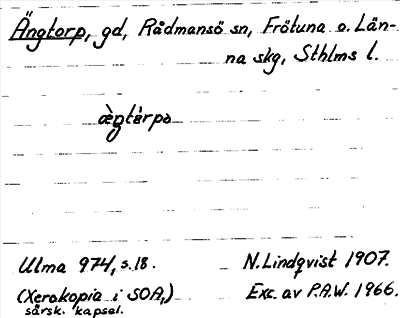 Ängtorp, gd, Rådmansö sn, Frötuna o. Län-
na skg, Sthlms l.
æ̀ŋtèrpə
Ulma 974, s. 18.
N. Lindqvist 1907.
(Xerokopia i SOA,)
särsk. kapsel.
Exc. av P.A.W. 1966.